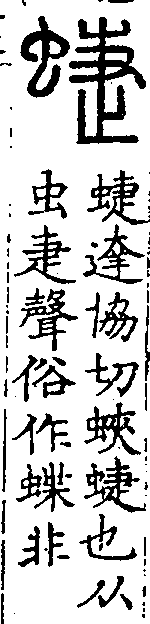 蜨
蜨達協切蛺蜨也从
虫疌聲俗作蝶非